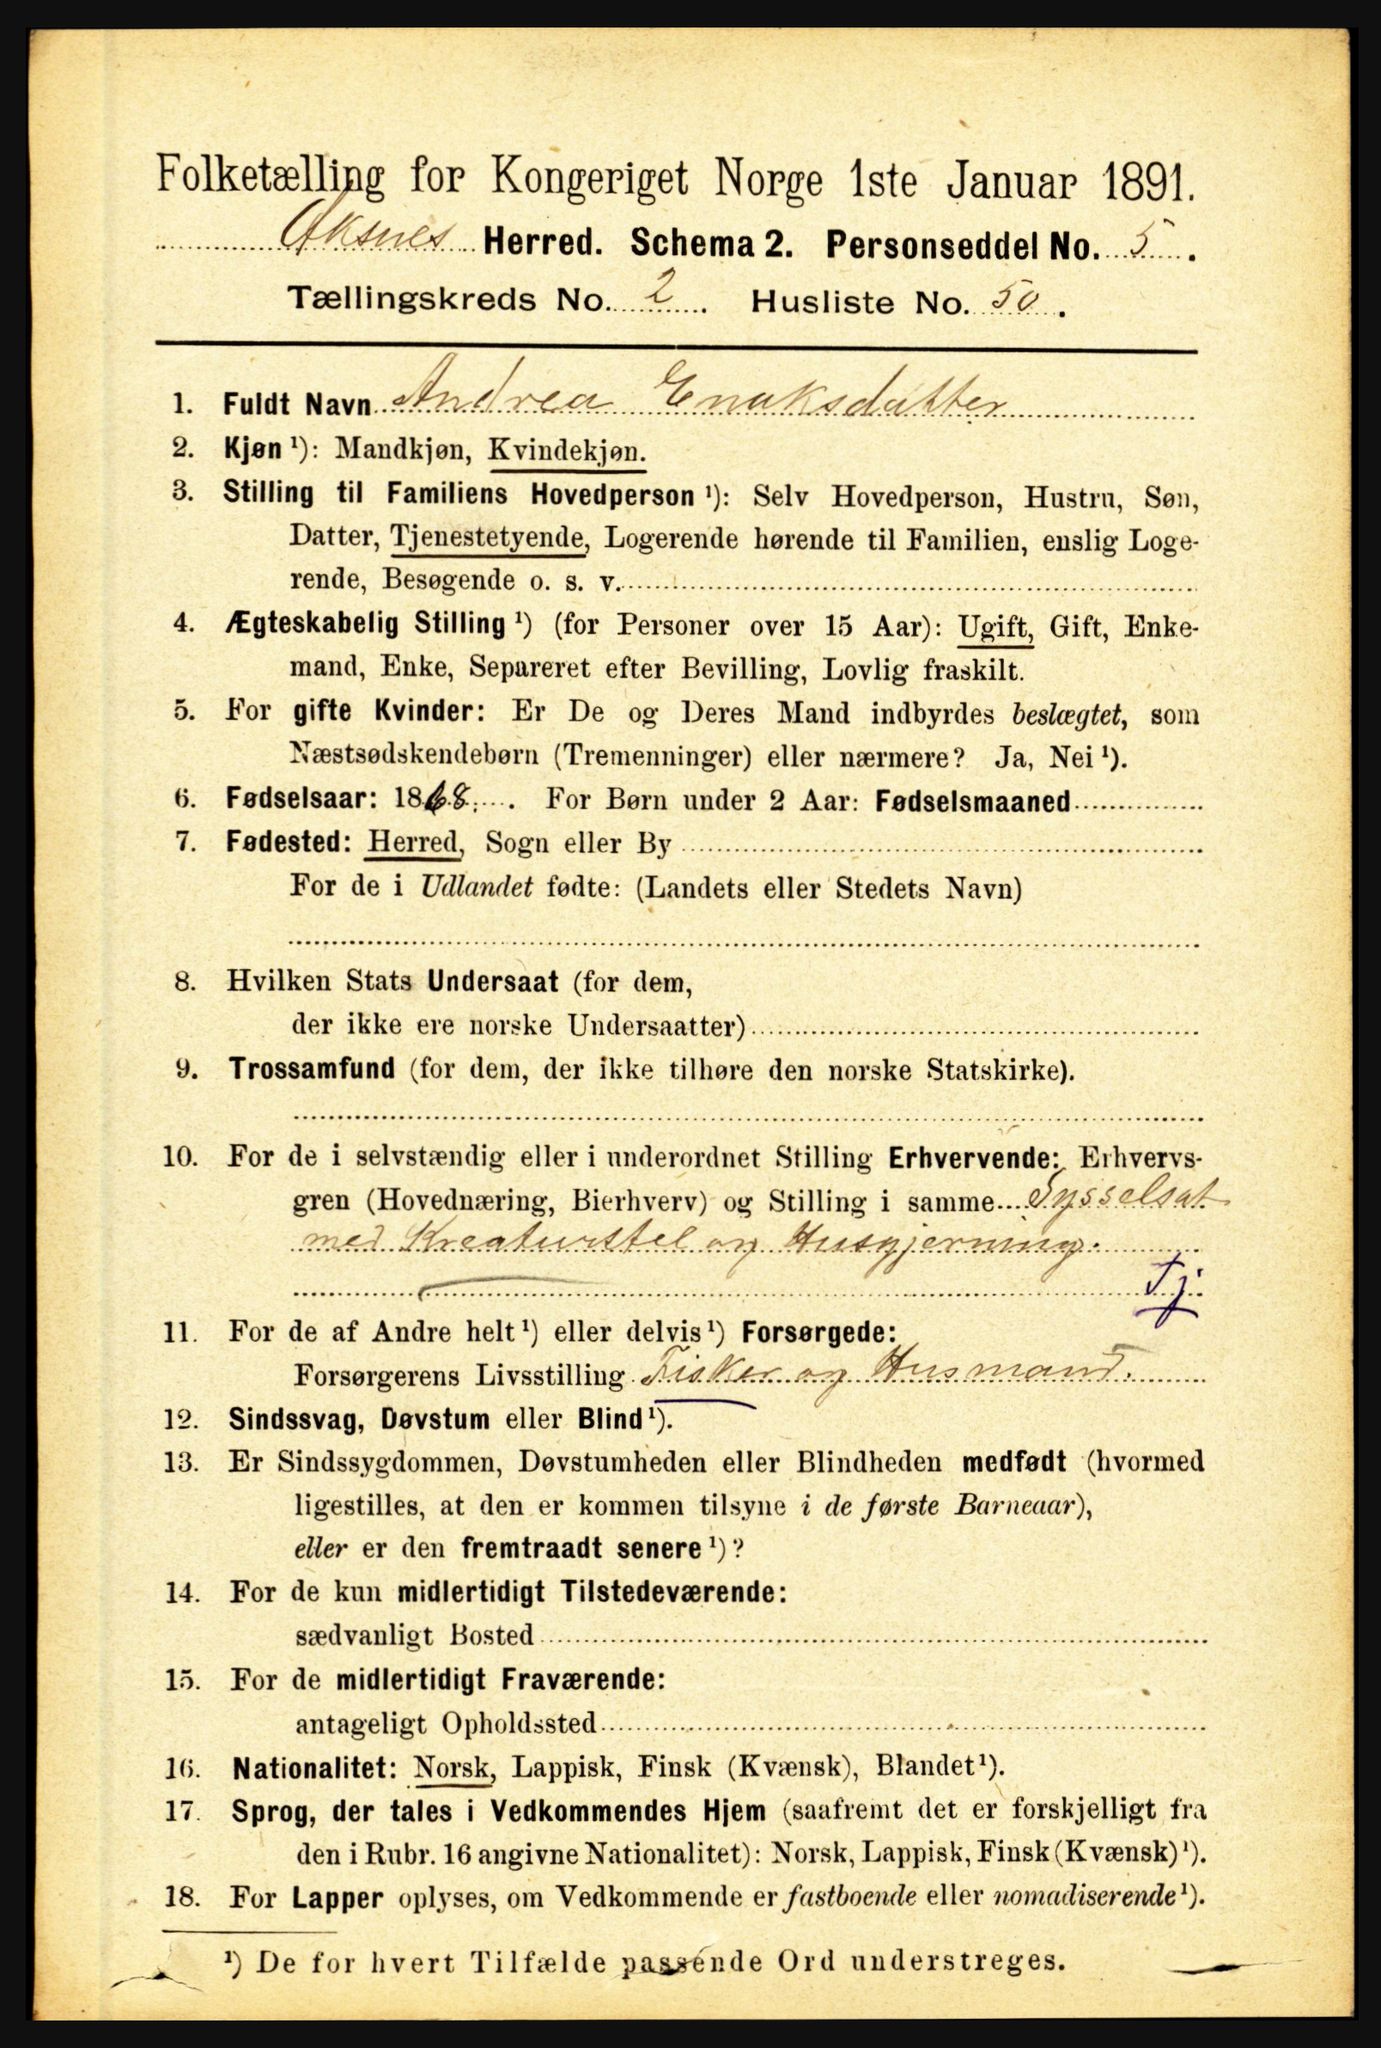 Folketælling for Kongeriget Norge 1ste Januar 1891.
Øksnes Herred. Schema 2. Personseddel No. 5.
Tællingskreds No. 2. Husliste No. 50.
1. Fuldt Navn Andrea Enoksdatter
2. Kjøn ¹): Mandkjøn, Kvindekjøn.
3. Stilling til Familiens Hovedperson ¹): Selv Hovedperson, Hustru, Søn,
Datter, Tjenestetyende, Logerende hørende til Familien, enslig Loge-
rende, Besøgende o. s. v.
4. Ægteskabelig Stilling ¹) (for Personer over 15 Aar): Ugift, Gift, Enke-
mand, Enke, Separeret efter Bevilling, Lovlig fraskilt.
5. For gifte Kvinder: Er De og Deres Mand indbyrdes beslægtet, som
Næstsødskendebørn (Tremenninger) eller nærmere? Ja, Nei ¹).
6. Fødselsaar: 1868. For Børn under 2 Aar: Fødselsmaaned
7. Fødested: Herred, Sogn eller By
For de i Udlandet fødte: (Landets eller Stedets Navn)
8. Hvilken Stats Undersaat (for dem,
der ikke ere norske Undersaatter)
9. Trossamfund (for dem, der ikke tilhøre den norske Statskirke).
10. For de i selvstændig eller i underordnet Stilling Erhvervende: Erhvervs-
gren (Hovednæring, Bierhverv) og Stilling i samme Sysselsat
med Kreaturstel og Husgjerning.
Tj
11. For de af Andre helt ¹) eller delvis ¹) Forsørgede:
Forsørgerens Livsstilling Fisker og Husmand.
12. Sindssvag, Døvstum eller Blind ¹).
13. Er Sindssygdommen, Døvstumheden eller Blindheden medfødt (hvormed
ligestilles, at den er kommen tilsyne i de første Barneaar),
eller er den fremtraadt senere ¹)?
14. For de kun midlertidigt Tilstedeværende:
sædvanligt Bosted
15. For de midlertidigt Fraværende:
antageligt Opholdssted
16. Nationalitet: Norsk, Lappisk, Finsk (Kvænsk), Blandet ¹).
17. Sprog, der tales i Vedkommendes Hjem (saafremt det er forskjelligt fra
den i Rubr. 16 angivne Nationalitet): Norsk, Lappisk, Finsk (Kvænsk) ¹).
18. For Lapper oplyses, om Vedkommende er fastboende eller nomadiserende ¹).
¹) De for hvert Tilfælde passende Ord understreges.